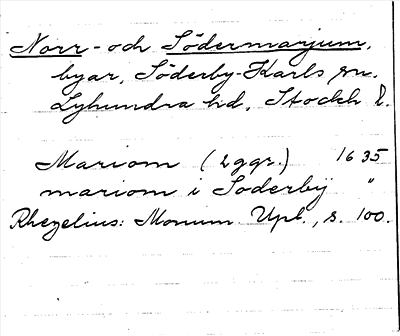 Norr- och Södermarjum,
byar, Söderby-Karls sn.
Lyhundra hd, Stockh l.
Mariom (2ggr.) 1635
mariom i Soderbij "
Rhezelius: Monum. Upl., s. 100.